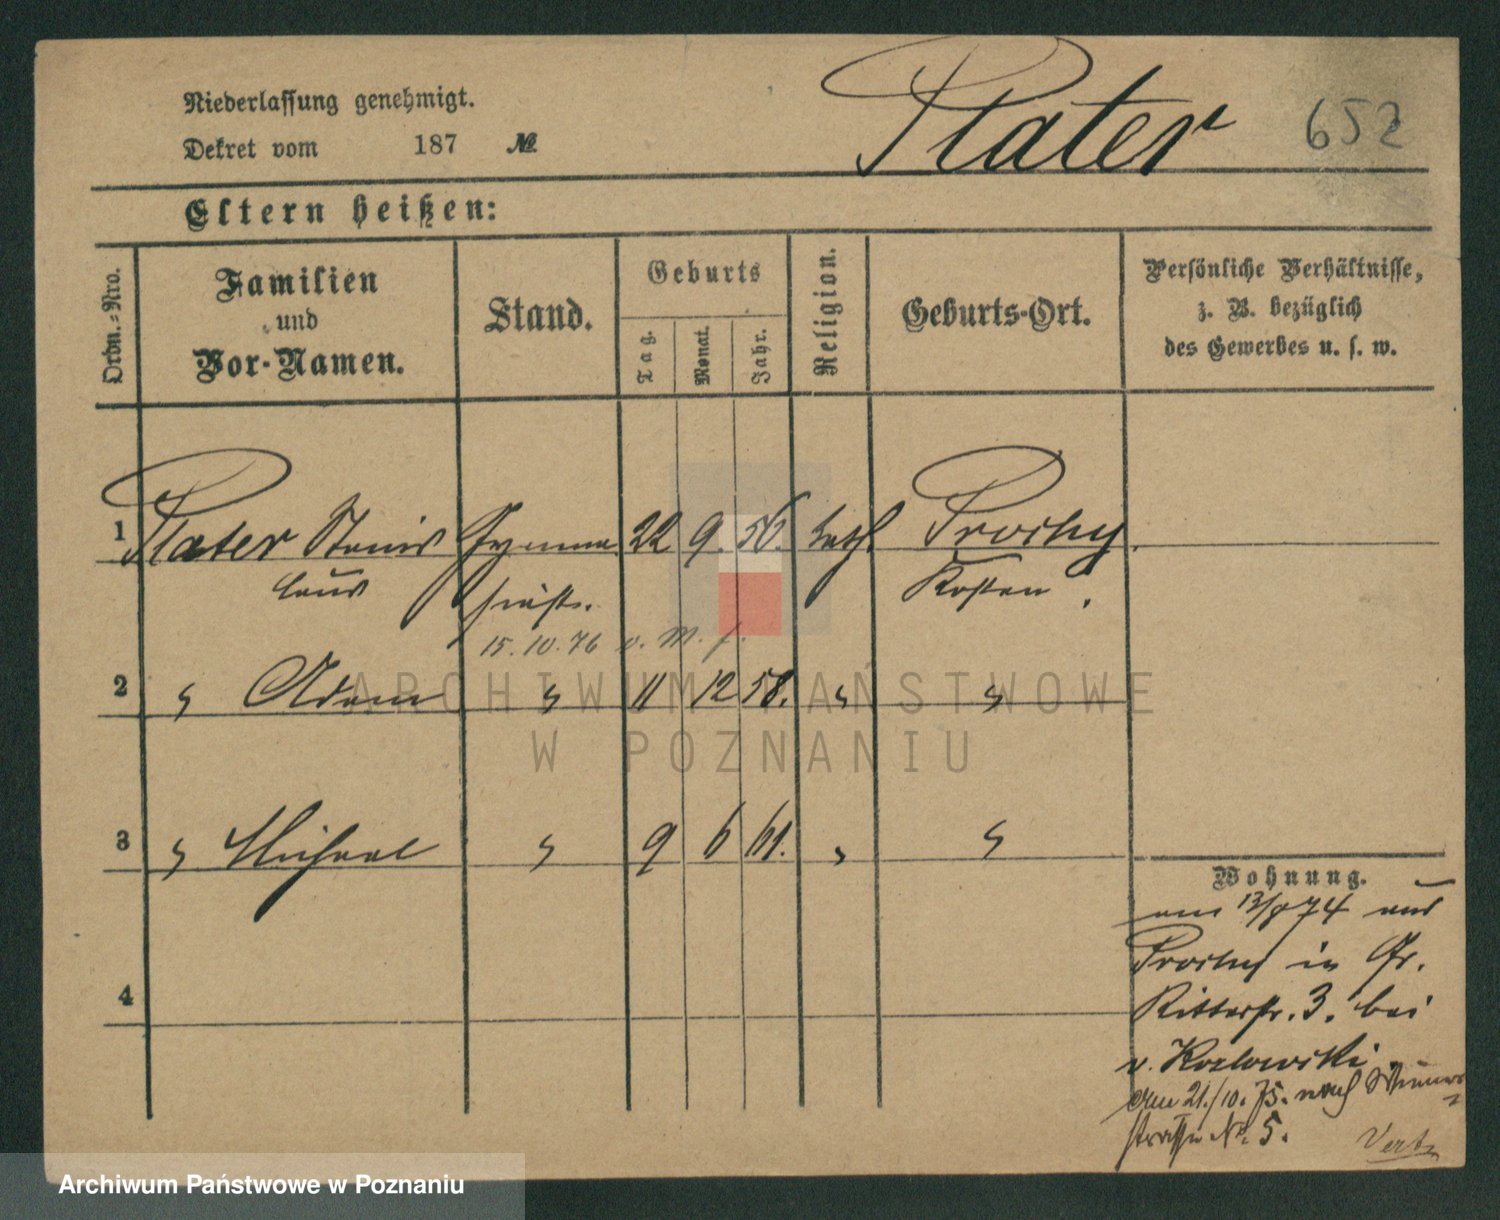 Niederlassung genehmigt.
Dekret vom 187 №
Plater
652
Eltern heißen:
Ordn.-Nro.
Familien
und
Vor-Namen.
Stand.
Geburts
Tag.
Monat.
Jahr.
Religion.
Geburts-Ort.
Persönliche Verhältnisse,
z. B. bezüglich
des Gewerbes u. s. w.
1 Plater Stanis Gymna 22 9. 56. kath. Prochy
laus siast. Kosten.
15.10.76 v. M. f.
2 " Adam " 11 12 58. " "
3 " Michael " 9 6 61. " "
4
Wohnung.
am 13/8 74 aus
Prochy in Gr.
Ritterstr. 3. bei
v. Kozlowski
am 21./10. 75. nach
strasse No. 5.
ARCHIWUM PAŃSTWOWE
W POZNANIU
Archiwum Państwowe w Poznaniu